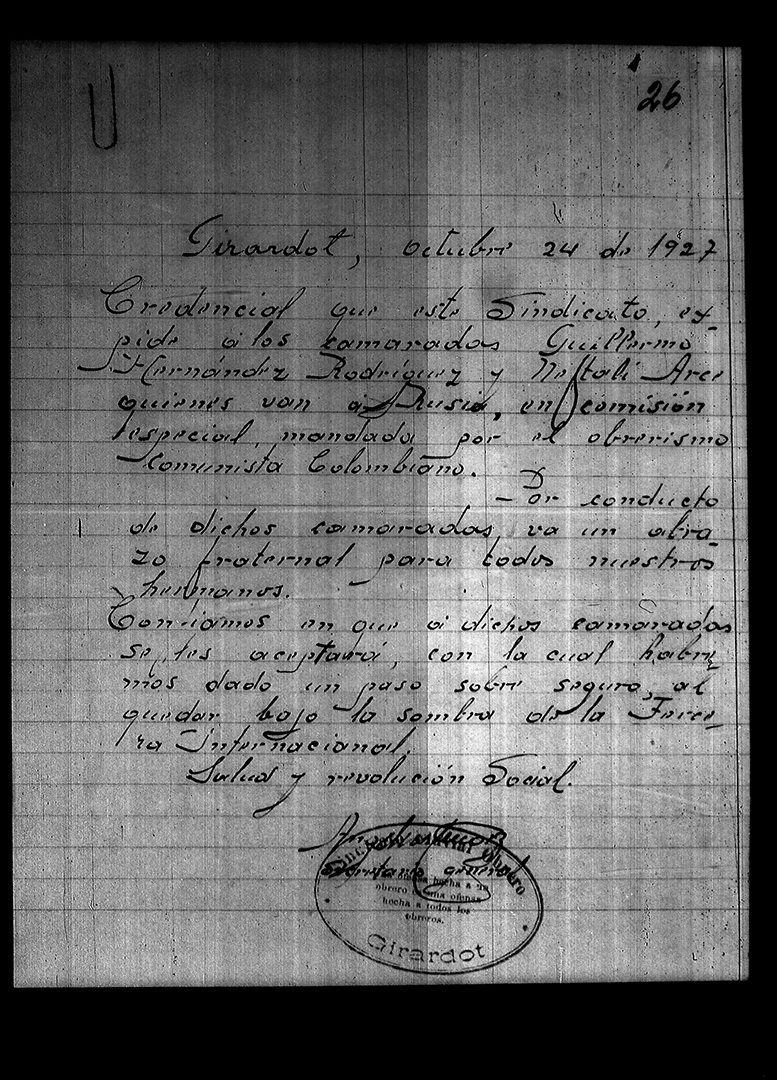 26
Girardot, octubre 24 de 1927
Credencial que este Sindicato, ex-
pide a los camaradas Guillermo
Hernández Rodríguez y Neftalí Arce
quienes van a Rusia, en comisión
especial, mandada por el obrerismo
Comunista Colombiano.
- Por conducto
de dichos camaradas, va un abra-
zo fraternal para todos nuestros
hermanos.
Confiamos en que a dichos camaradas
se les aceptará, con la cual habre-
mos dado un paso sobre seguro, al
quedar bajo la sombra de la Terce-
ra Internacional.
Salud y revolución Social.
Secretario general
Sindicato Central Obrero
hecha a un
obrero es una ofensa
hecha a todos los
obreros.
Girardot